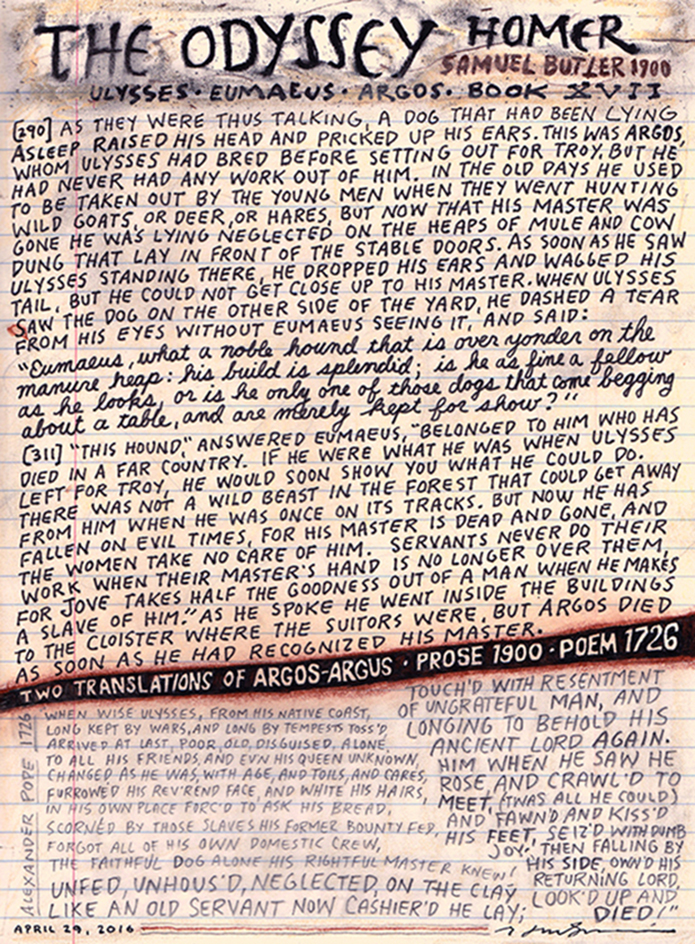 THE ODYSSEY HOMER
SAMUEL BUTLER 1900
ULYSSES · EUMAEUS · ARGOS · BOOK XVII
[290] AS THEY WERE THUS TALKING, A DOG THAT HAD BEEN LYING
ASLEEP RAISED HIS HEAD AND PRICKED UP HIS EARS. THIS WAS ARGOS,
WHOM ULYSSES HAD BRED BEFORE SETTING OUT FOR TROY, BUT HE
HAD NEVER HAD ANY WORK OUT OF HIM. IN THE OLD DAYS HE USED
TO BE TAKEN OUT BY THE YOUNG MEN WHEN THEY WENT HUNTING
WILD GOATS, OR DEER, OR HARES, BUT NOW THAT HIS MASTER WAS
GONE HE WAS LYING NEGLECTED ON THE HEAPS OF MULE AND COW
DUNG THAT LAY IN FRONT OF THE STABLE DOORS. AS SOON AS HE SAW
ULYSSES STANDING THERE, HE DROPPED HIS EARS AND WAGGED HIS
TAIL, BUT HE COULD NOT GET CLOSE UP TO HIS MASTER. WHEN ULYSSES
SAW THE DOG ON THE OTHER SIDE OF THE YARD, HE DASHED A TEAR
FROM HIS EYES WITHOUT EUMAEUS SEEING IT, AND SAID:
"Eumaeus, what a noble hound that is over yonder on the
manure heap: his build is splendid; is he as fine a fellow
as he looks, or is he only one of those dogs that come begging
about a table, and are merely kept for show?"
[311] "THIS HOUND," ANSWERED EUMAEUS, "BELONGED TO HIM WHO HAS
DIED IN A FAR COUNTRY. IF HE WERE WHAT HE WAS WHEN ULYSSES
LEFT FOR TROY, HE WOULD SOON SHOW YOU WHAT HE COULD DO.
THERE WAS NOT A WILD BEAST IN THE FOREST THAT COULD GET AWAY
FROM HIM WHEN HE WAS ONCE ON ITS TRACKS. BUT NOW HE HAS
FALLEN ON EVIL TIMES, FOR HIS MASTER IS DEAD AND GONE, AND
THE WOMEN TAKE NO CARE OF HIM. SERVANTS NEVER DO THEIR
WORK WHEN THEIR MASTER'S HAND IS NO LONGER OVER THEM,
FOR JOVE TAKES HALF THE GOODNESS OUT OF A MAN WHEN HE MAKES
A SLAVE OF HIM." AS HE SPOKE HE WENT INSIDE THE BUILDINGS
TO THE CLOISTER WHERE THE SUITORS WERE, BUT ARGOS DIED
AS SOON AS HE HAD RECOGNIZED HIS MASTER.
TWO TRANSLATIONS OF ARGOS-ARGUS · PROSE 1900 · POEM 1726
ALEXANDER POPE 1726
WHEN WISE ULYSSES, FROM HIS NATIVE COAST,
LONG KEPT BY WARS, AND LONG BY TEMPESTS TOSS'D
ARRIVED AT LAST, POOR, OLD, DISGUISED, ALONE,
TO ALL HIS FRIENDS, AND EV'N HIS QUEEN UNKNOWN,
CHANGED AS HE WAS, WITH AGE, AND TOILS, AND CARES,
FURROWED HIS REV'REND FACE, AND WHITE HIS HAIRS,
IN HIS OWN PLACE FORC'D TO ASK HIS BREAD,
SCORNED BY THOSE SLAVES HIS FORMER BOUNTY FED,
FORGOT ALL OF HIS OWN DOMESTIC CREW,
THE FAITHFUL DOG ALONE HIS RIGHTFUL MASTER KNEW!
UNFED, UNHOUS'D, NEGLECTED, ON THE CLAY
LIKE AN OLD SERVANT NOW CASHIER'D HE LAY;
TOUCH'D WITH RESENTMENT
OF UNGRATEFUL MAN, AND
LONGING TO BEHOLD HIS
ANCIENT LORD AGAIN.
HIM WHEN HE SAW HE
ROSE AND CRAWL'D TO
MEET, (TWAS ALL HE COULD)
AND FAWN'D AND KISS'D
HIS FEET, SEIZ'D WITH DUMB
JOY: THEN FALLING BY
HIS SIDE, OWN'D HIS
RETURNING LORD,
LOOK'D UP AND
DIED!"
APRIL 29, 2016